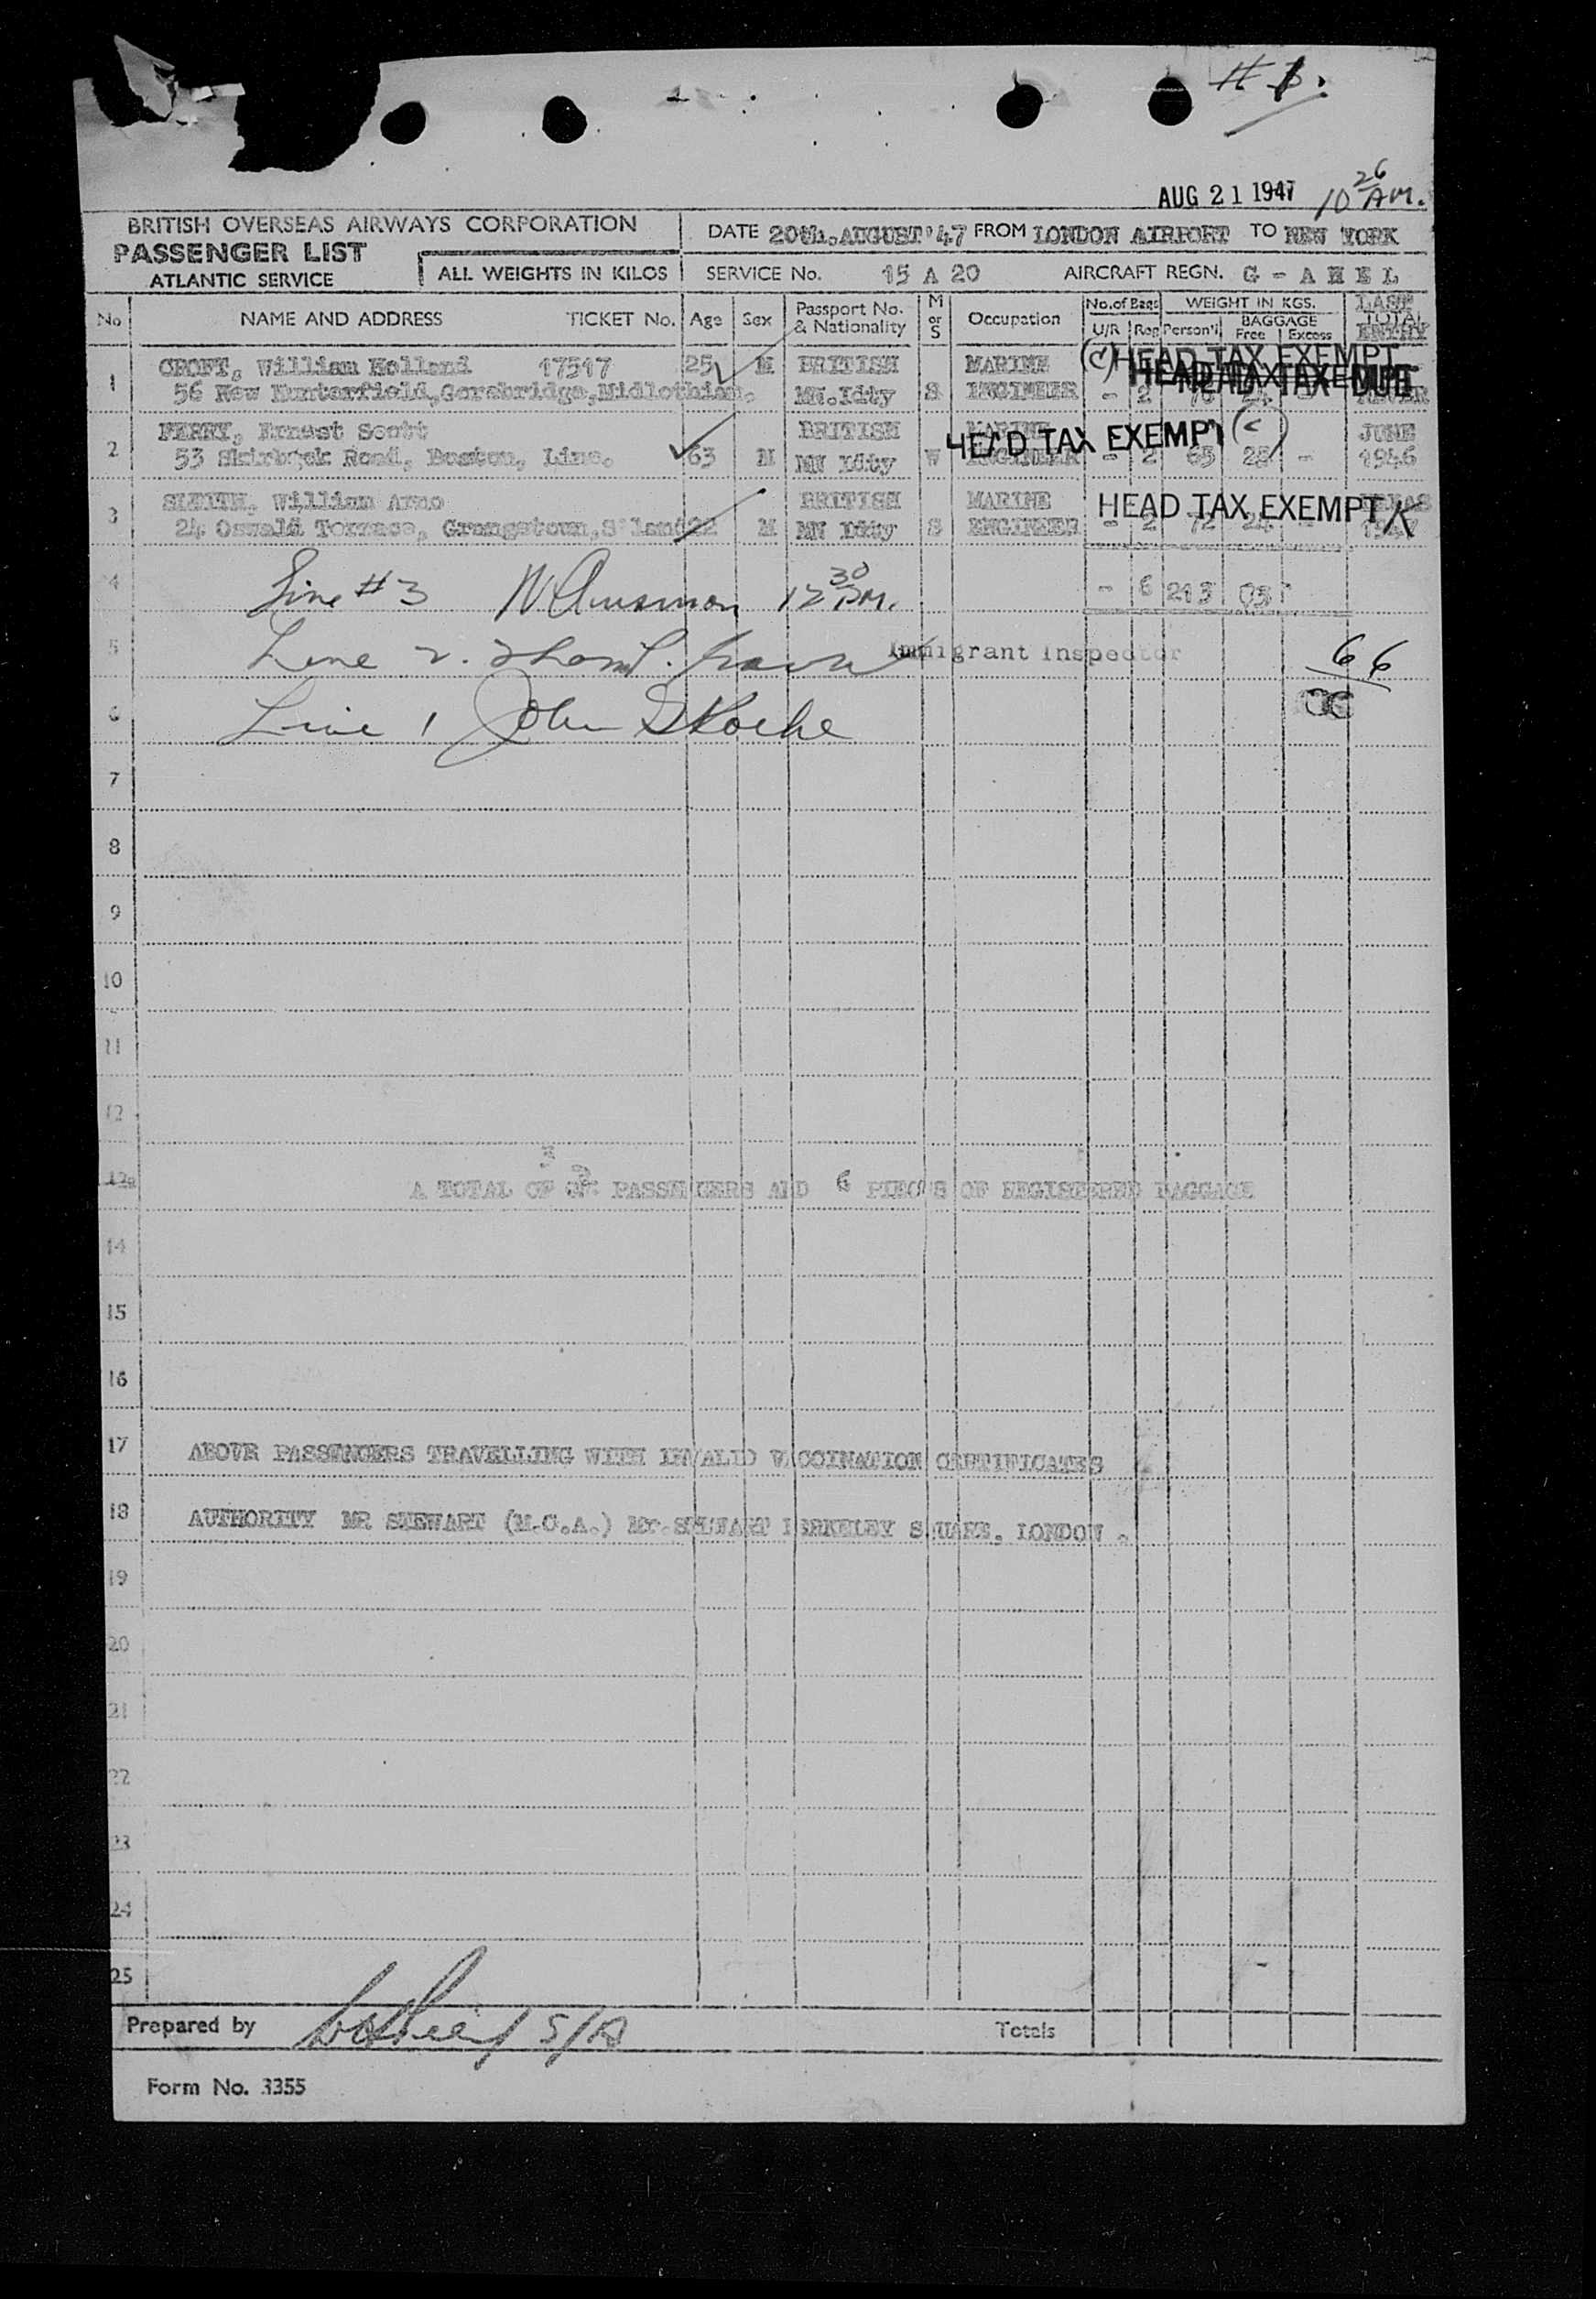 # 1.
AUG 21 1947 10 26 AM.
BRITISH OVERSEAS AIRWAYS CORPORATION
PASSENGER LIST
ATLANTIC SERVICE
ALL WEIGHTS IN KILOS
DATE 20th. AUGUST '47 FROM LONDON AIRPORT TO NEW YORK
SERVICE No. 15 A 20 AIRCRAFT REGN. G - A H E L
No NAME AND ADDRESS TICKET No. Age Sex Passport No. & Nationality M or S Occupation No. of Bags U/R Reg WEIGHT IN KGS. Person'l BAGGAGE Free Excess LAST TOTAL ENTRY
1 CROFT, William Holland 17517 25 M BRITISH MARINE (C) HEAD TAX EXEMPT
56 New Hunterfield, Gorebridge, Midlothian. MN. Idty S ENGINEER - 2 HEAD TAX EXEMPT NEVER
2 FERRY, Ernest Scott BRITISH MARINE HEAD TAX EXEMPT (C) JUNE
53 Skirbeck Road, Boston, Linc. 63 M MN Idty W ENGINEER - 2 65 28 - 1946
3 William BRITISH MARINE HEAD TAX EXEMPT
24 Oswald Terrace, Grangetown, S'land 22 M MN Idty S ENGINEER - 2 72 24 1947
4 Line # 3 12 30 PM. - 6 213
5 Line 2. Immigrant Inspector 66
6 Line 1 John
7
8
9
10
11
12
13 A TOTAL OF 3 PASSENGERS AND 6 PIECES OF REGISTERED BAGGAGE
14
15
16
17 ABOVE PASSENGERS TRAVELLING WITH INVALID VACCINATION CERTIFICATES
18 AUTHORITY MR STEWART (M.C.A.) Mr. STEWART BERKELEY SQUARE. LONDON .
19
20
21
22
23
24
25
Prepared by S/A Totals
Form No. 3355